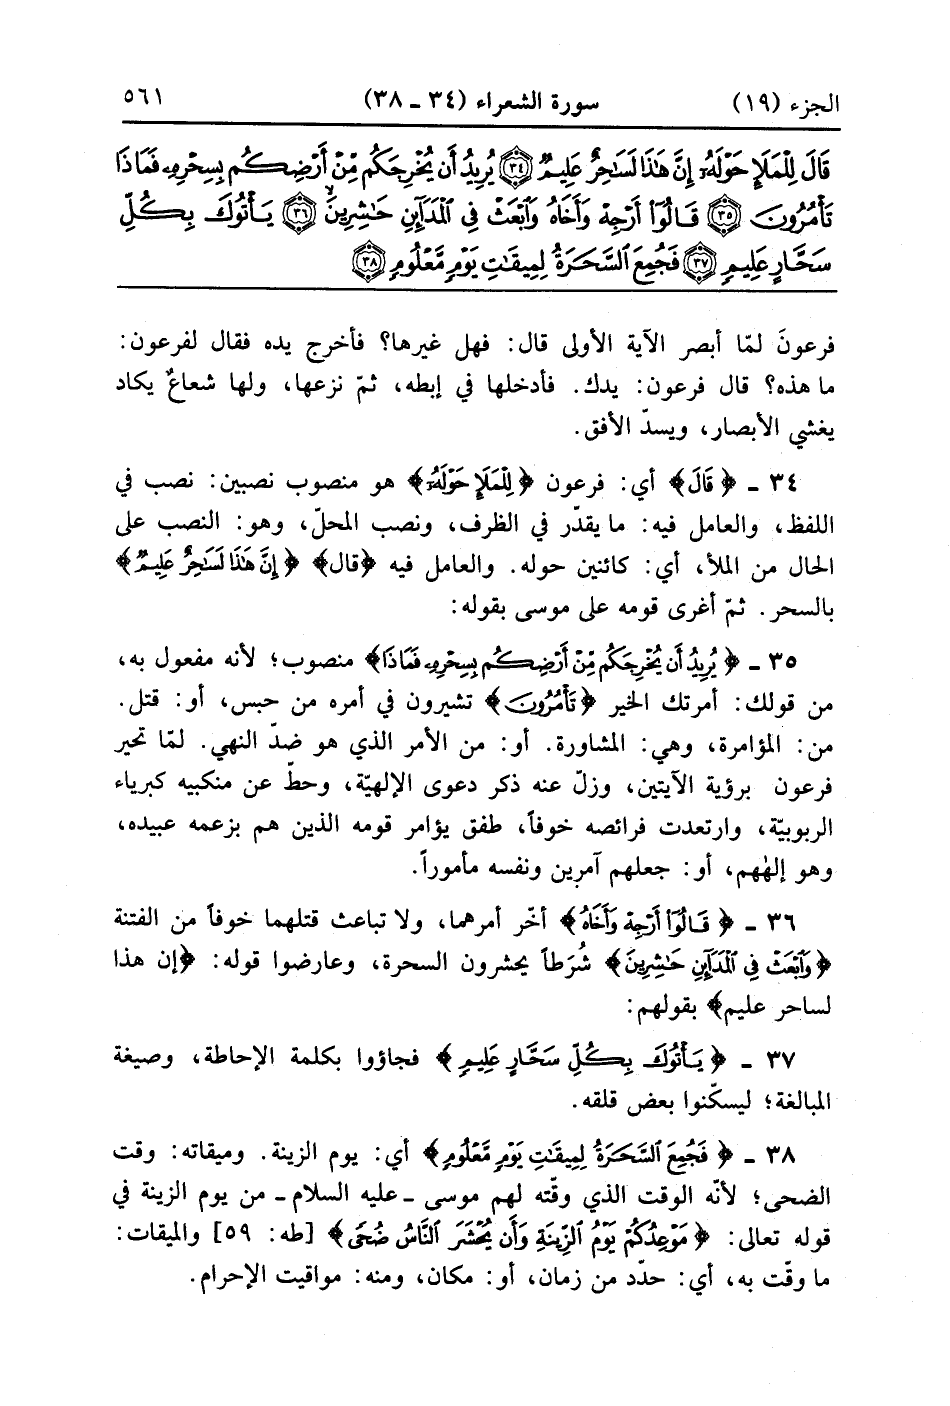 الجزء (١٩) سورة الشعراء (٣٤ ـ ٣٨) ٥٦١
قَالَ لِلْمَلَإِ حَوْلَهُۥٓ إِنَّ هَٰذَا لَسَٰحِرٌ عَلِيمٌ ٣٤ يُرِيدُ أَن يُخْرِجَكُم مِّنْ أَرْضِكُم بِسِحْرِهِۦ فَمَاذَا
تَأْمُرُونَ ٣٥ قَالُوٓا۟ أَرْجِهْ وَأَخَاهُ وَٱبْعَثْ فِى ٱلْمَدَآئِنِ حَٰشِرِينَ ٣٦ يَأْتُوكَ بِكُلِّ
سَحَّارٍ عَلِيمٍ ٣٧ فَجُمِعَ ٱلسَّحَرَةُ لِمِيقَٰتِ يَوْمٍ مَّعْلُومٍ ٣٨
فرعونَ لمّا أبصر الآية الأولى قال: فهل غيرها؟ فأخرج يده فقال لفرعون:
ما هذه؟ قال فرعون: يدك. فأدخلها في إبطه، ثمّ نزعها، ولها شعاعٌ يكاد
يغشي الأبصار، ويسدّ الأفق.
٣٤ ـ ﴿قَالَ﴾ أي: فرعون ﴿لِلْمَلَإِ حَوْلَهُۥٓ﴾ هو منصوب نصبين: نصب في
اللفظ، والعامل فيه: ما يقدّر في الظرف، ونصب المحلّ، وهو: النصب على
الحال من الملأ، أي: كائنين حوله. والعامل فيه ﴿قال﴾ ﴿إِنَّ هَٰذَا لَسَٰحِرٌ عَلِيمٌ﴾
بالسحر. ثمّ أغرى قومه على موسى بقوله:
٣٥ ـ ﴿يُرِيدُ أَن يُخْرِجَكُم مِّنْ أَرْضِكُم بِسِحْرِهِۦ فَمَاذَا﴾ منصوب؛ لأنه مفعول به،
من قولك: أمرتك الخير ﴿تَأْمُرُونَ﴾ تشيرون في أمره من حبس، أو: قتل.
من: المؤامرة، وهي: المشاورة. أو: من الأمر الذي هو ضدّ النهي. لمّا تحير
فرعون برؤية الآيتين، وزلّ عنه ذكر دعوى الإلهيّة، وحطّ عن منكبيه كبرياء
الربوبيّة، وارتعدت فرائصه خوفاً، طفق يؤامر قومه الذين هم بزعمه عبيده،
وهو إلٰههم، أو: جعلهم آمرين ونفسه مأموراً.
٣٦ ـ ﴿قَالُوٓا۟ أَرْجِهْ وَأَخَاهُ﴾ أخّر أمرهما، ولا تباعث قتلهما خوفاً من الفتنة
﴿وَٱبْعَثْ فِى ٱلْمَدَآئِنِ حَٰشِرِينَ﴾ شُرَطاً يحشرون السحرة، وعارضوا قوله: ﴿إن هذا
لساحر عليم﴾ بقولهم:
٣٧ ـ ﴿يَأْتُوكَ بِكُلِّ سَحَّارٍ عَلِيمٍ﴾ فجاؤوا بكلمة الإحاطة، وصيغة
المبالغة؛ ليسكّنوا بعض قلقه.
٣٨ ـ ﴿فَجُمِعَ ٱلسَّحَرَةُ لِمِيقَٰتِ يَوْمٍ مَّعْلُومٍ﴾ أي: يوم الزينة. وميقاته: وقت
الضحى؛ لأنّه الوقت الذي وقّته لهم موسى ـ عليه السلام ـ من يوم الزينة في
قوله تعالى: ﴿مَوْعِدُكُمْ يَوْمُ ٱلزِّينَةِ وَأَن يُحْشَرَ ٱلنَّاسُ ضُحًى﴾ [طه: ٥٩] والميقات:
ما وقّت به، أي: حدّد من زمان، أو: مكان، ومنه: مواقيت الإحرام.